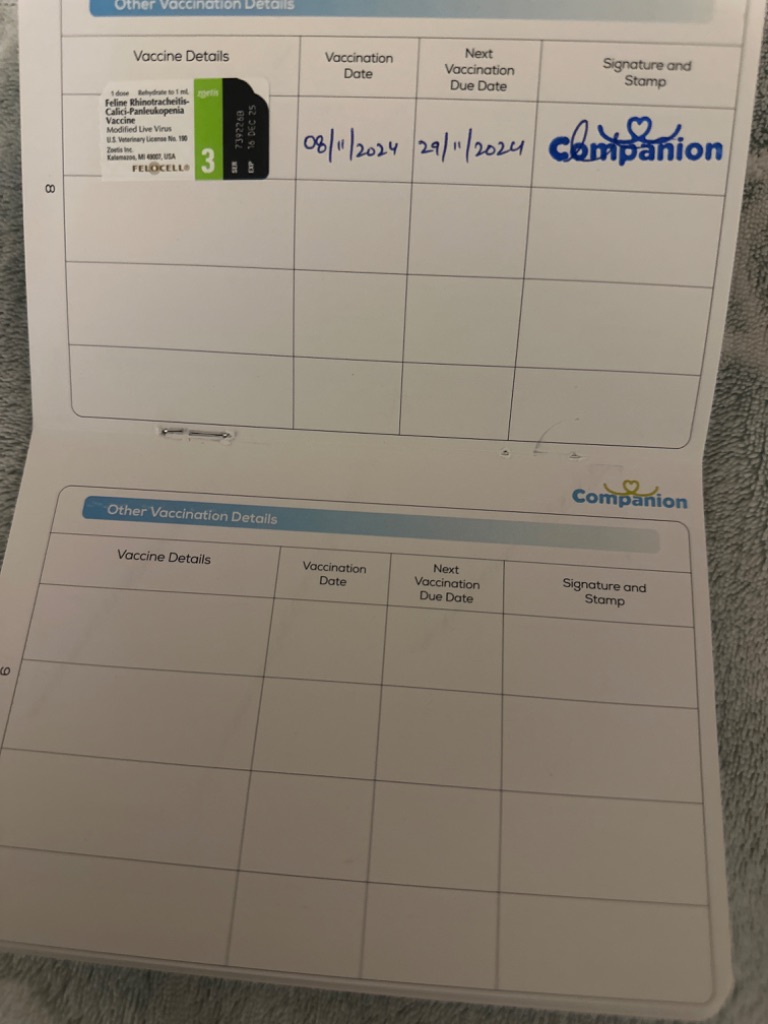 Other Vaccination Details
Vaccine Details
Vaccination
Date
Next
Vaccination
Due Date
Signature and
Stamp
1 dose Rehydrate to 1 mL
Feline Rhinotracheitis-
Calici-Panleukopenia
Vaccine
Modified Live Virus
U.S. Veterinary License No. 190
Zoetis Inc.
Kalamazoo, MI 49007, USA
FELOCELL®
zoetis
3
SER 739226B
EXP 16 DEC 25
08/11/2024
29/11/2024
Companion
8
Companion
Other Vaccination Details
Vaccine Details
Vaccination
Date
Next
Vaccination
Due Date
Signature and
Stamp
9